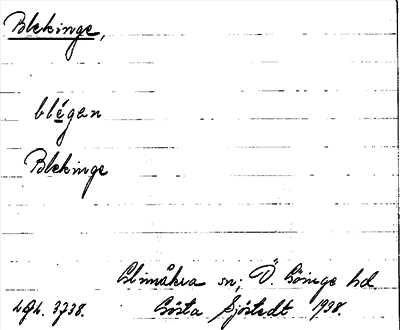 Blekinge,
blégan
Blekinge
Glimåkra sn; Ö. Göinge hd.
Lgh. 3738. Gösta Sjöstedt 1938.